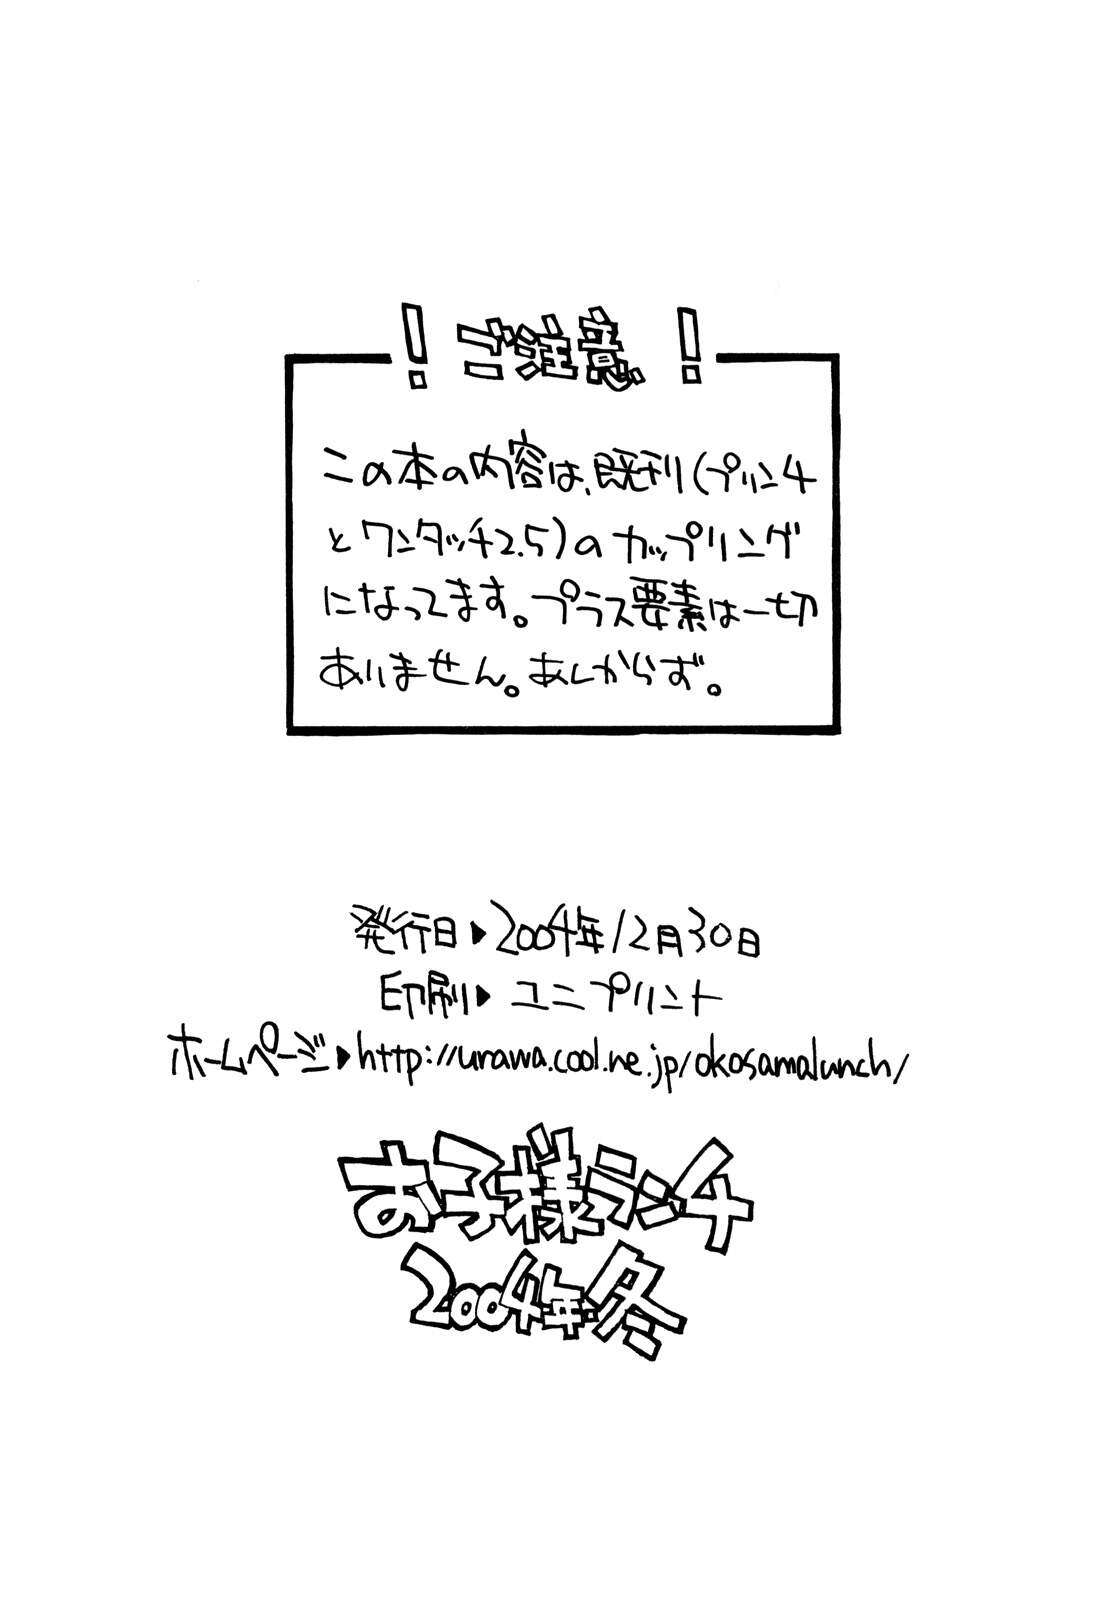 ！ご注意！
この本の内容は、既刊(プリン4
とワンタッチ2.5)のカップリング
になってます。プラス要素は一切
ありません。あしからず。
発行日▶2004年12月30日
印刷▶ユニプリント
ホームページ▶http://urawa.cool.ne.jp/okosamalunch/
お子様ランチ
2004年冬